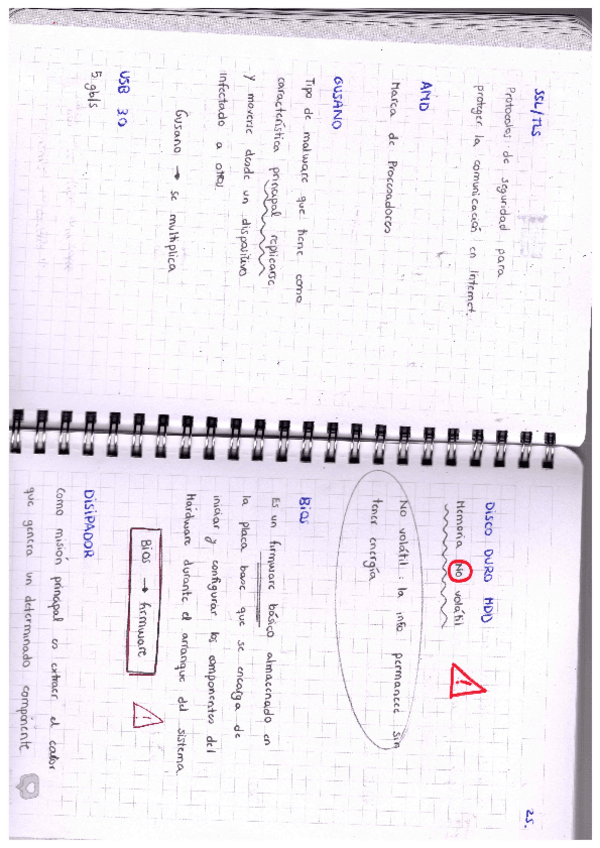 SSL/TLS
Protocolos de seguridad para
proteger la comunicación en Internet.
AMD
Marca de Procesadores
GUSANO
Tipo de malware que tiene como
característica principal replicarse
y moverse desde un dispositivo
infectado a otros.
Gusano → se multiplica
USB 3.0
5 gb/s
25.
DISCO DURO HDD
Memoria NO volátil
No volátil: la info permanece sin
tener energía
BIOS
Es un firmware básico almacenado en
la placa base que se encarga de
iniciar y configurar los componentes del
Hardware durante el arranque del sistema.
BIOS → firmware
DISIPADOR
Como misión principal es extraer el calor
que genera un determinado componente